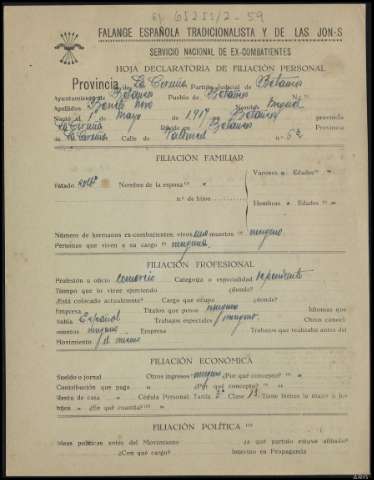 65251/2-59
FALANGE ESPAÑOLA TRADICIONALISTA Y DE LAS JON-S
SERVICIO NACIONAL DE EX-COMBATIENTES
HOJA DECLARATORIA DE FILIACIÓN PERSONAL
Provincia de La Coruña Partido Judicial de Betanzos
Ayuntamiento de Betanzos Pueblo de Betanzos
Apellidos Nombre Miguel
Nació el 1º de Mayo de 1917 Betanzos provincia
La Coruña Reside en Betanzos Provincia
La Coruña Calle de n.º 62
FILIACIÓN FAMILIAR
Varones " Edades "
Estado solt Nombre de la esposa "
n.º de hijos
Hembras " Edades "
Número de hermanos ex-combatientes vivos uno muertos " ninguno
Personas que viven a su cargo " ninguna
FILIACIÓN PROFESIONAL
Profesión u oficio comercio Categoría o especialidad dependiente
Tiempo que lo viene ejerciendo ¿donde?
¿Está colocado actualmente? Cargo que ocupa ¿donde?
Empresa Títulos que posee ninguno Idiomas que
habla Español Trabajos especiales ninguno Otros conoci-
mientos ninguno Empresa Trabajos que realizaba antes del
Movimiento el mismo
FILIACIÓN ECONÓMICA
Sueldo o jornal Otros ingresos ninguno ¿Por qué concepto? "
Contribución que paga " ¿Por qué concepto? "
Renta de casa " Cédula Personal Tarifa Clase Tiene bienes la mujer o
hijos " ¿En qué cuantía? "
FILIACIÓN POLÍTICA
Ideas políticas antes del Movimiento " ¿a qué partido estuvo afiliado?
¿Con qué cargo? Intervino en Propaganda